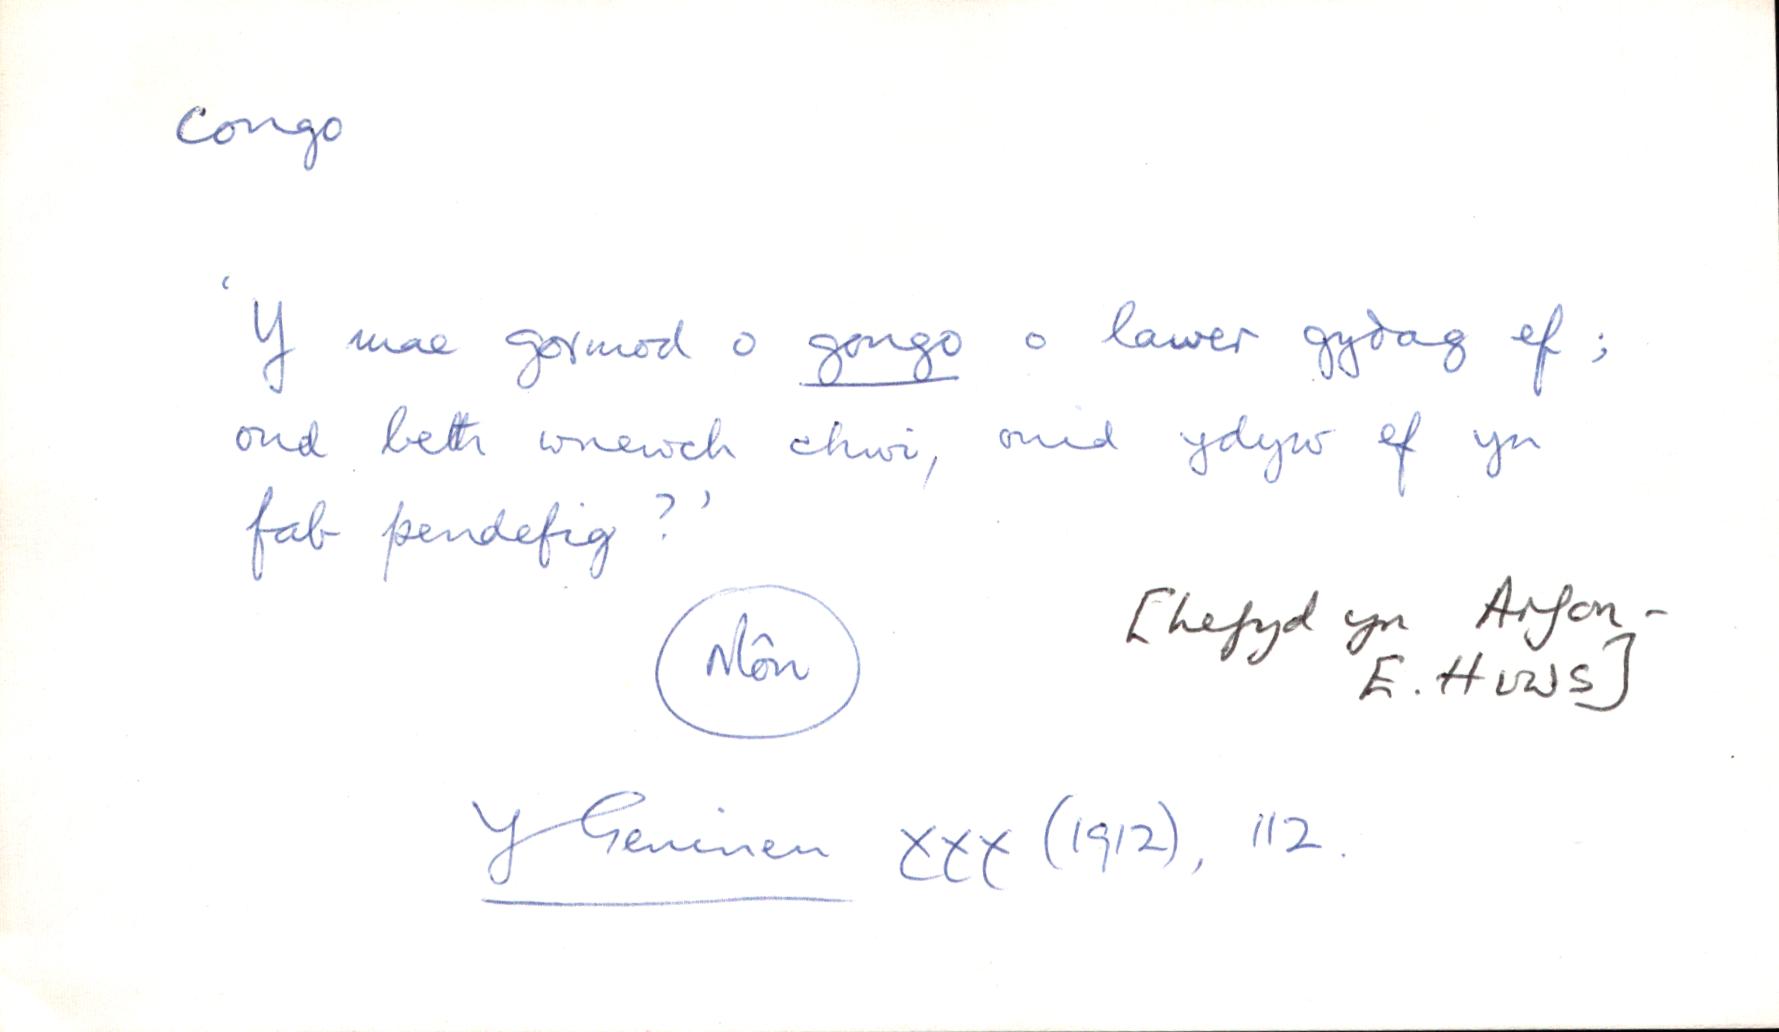 Congo
'Y mae gormod o gongo o lawer gydag ef;
ond beth wnewch chwi, onid ydyw ef yn
fab pendefig?'
Môn
[hefyd yn Arfon -
E. HUWS]
Y Geninen XXX (1912), 112.